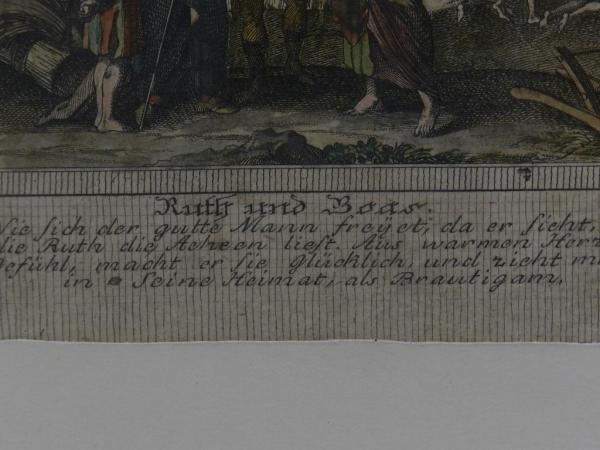 Ruth und Boas.
Wie sich der gutte Mann freÿet, da er sieht,
die Ruth die Aehren liest. Aus warmen Herz
Gefühl, macht er sie glücklich, und zieht mit
in seine Heimat, als Brautigam.